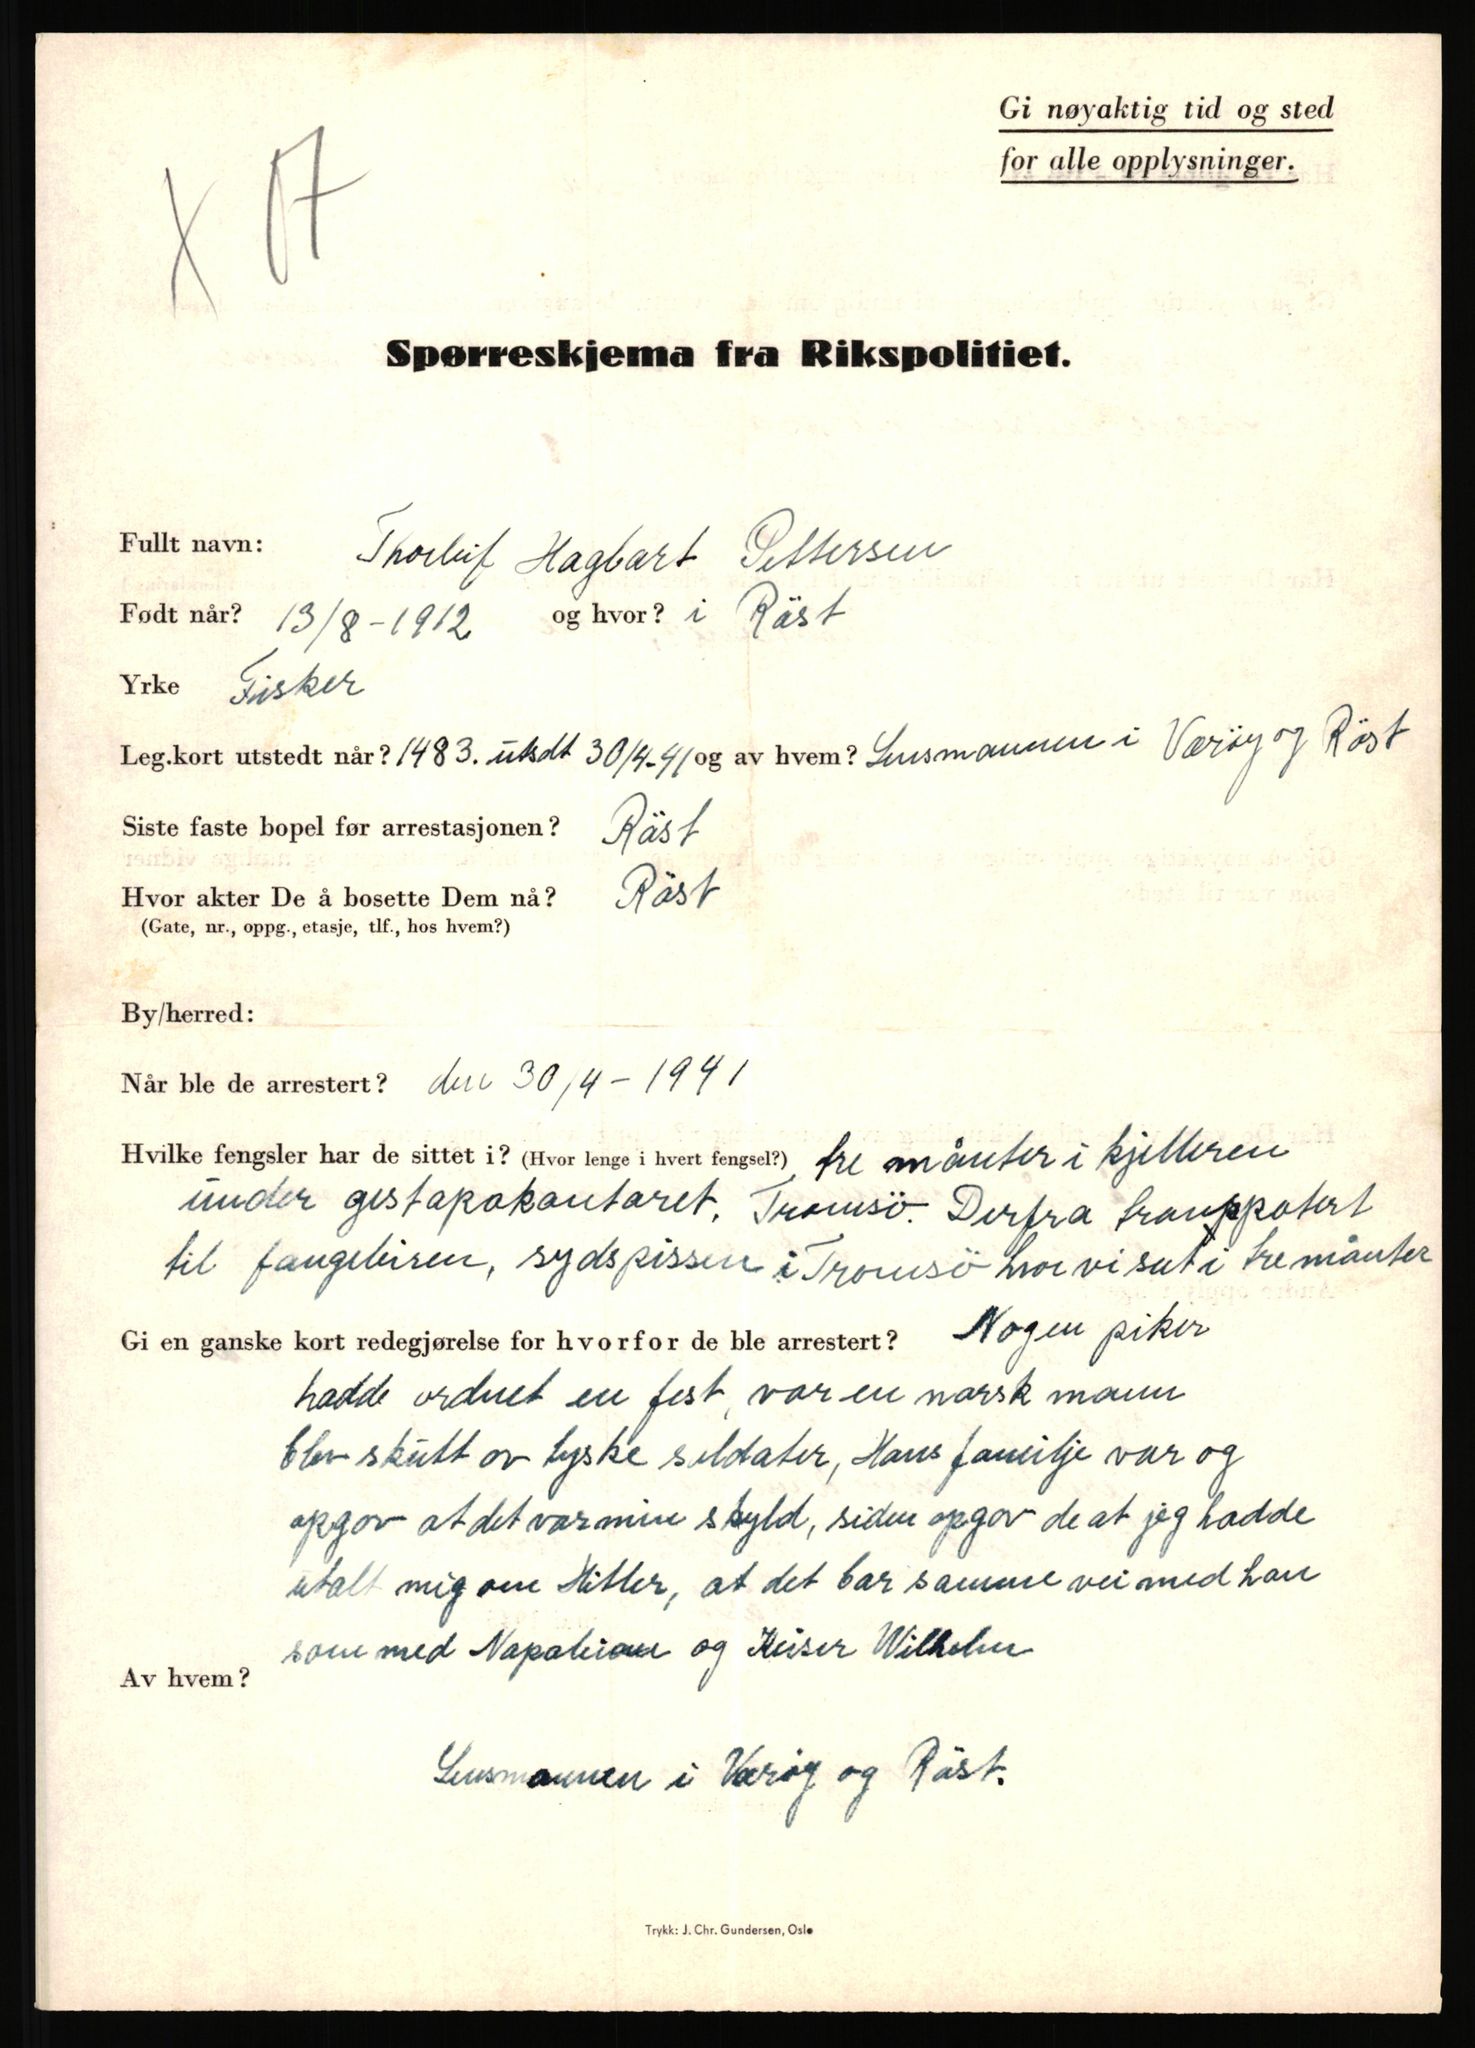 Gi nøyaktig tid og sted
for alle opplysninger.
X
Spørreskjema fra Rikspolitiet.
Fullt navn: Thorleif Hagbart Pettersen
Født når? 13/8-1912 og hvor? i Röst
Yrke Fisker
Leg.kort utstedt når? 1483. utsdt 30/4-41 og av hvem? Lensmannen i Værøy og Röst
Siste faste bopel før arrestasjonen? Röst
Hvor akter De å bosette Dem nå? Röst
(Gate, nr., oppg., etasje, tlf., hos hvem?)
By/herred:
Når ble de arrestert? den 30/4-1941
Hvilke fengsler har de sittet i? (Hvor lenge i hvert fengsel?) tre månter i kjelleren
under gestapokontoret, Tromsö. Derfra transppotert
til fangeleiren, sydspissen i Tromsö hvor vi sat i tre månter
Gi en ganske kort redegjørelse for hvorfor de ble arrestert? Nogen piker
hadde ordnet en fest, var en norsk mann
blev skutt av tyske soldater, Hans familje var og
opgav at det var min skyld, siden opgav de at jeg hadde
utalt mig om Hitler, at det bar samme vei med han
som med Napoleion og Keiser Wilhelm
Av hvem?
Lensmannen i Værøy og Röst.
Trykk: J. Chr. Gundersen, Oslo